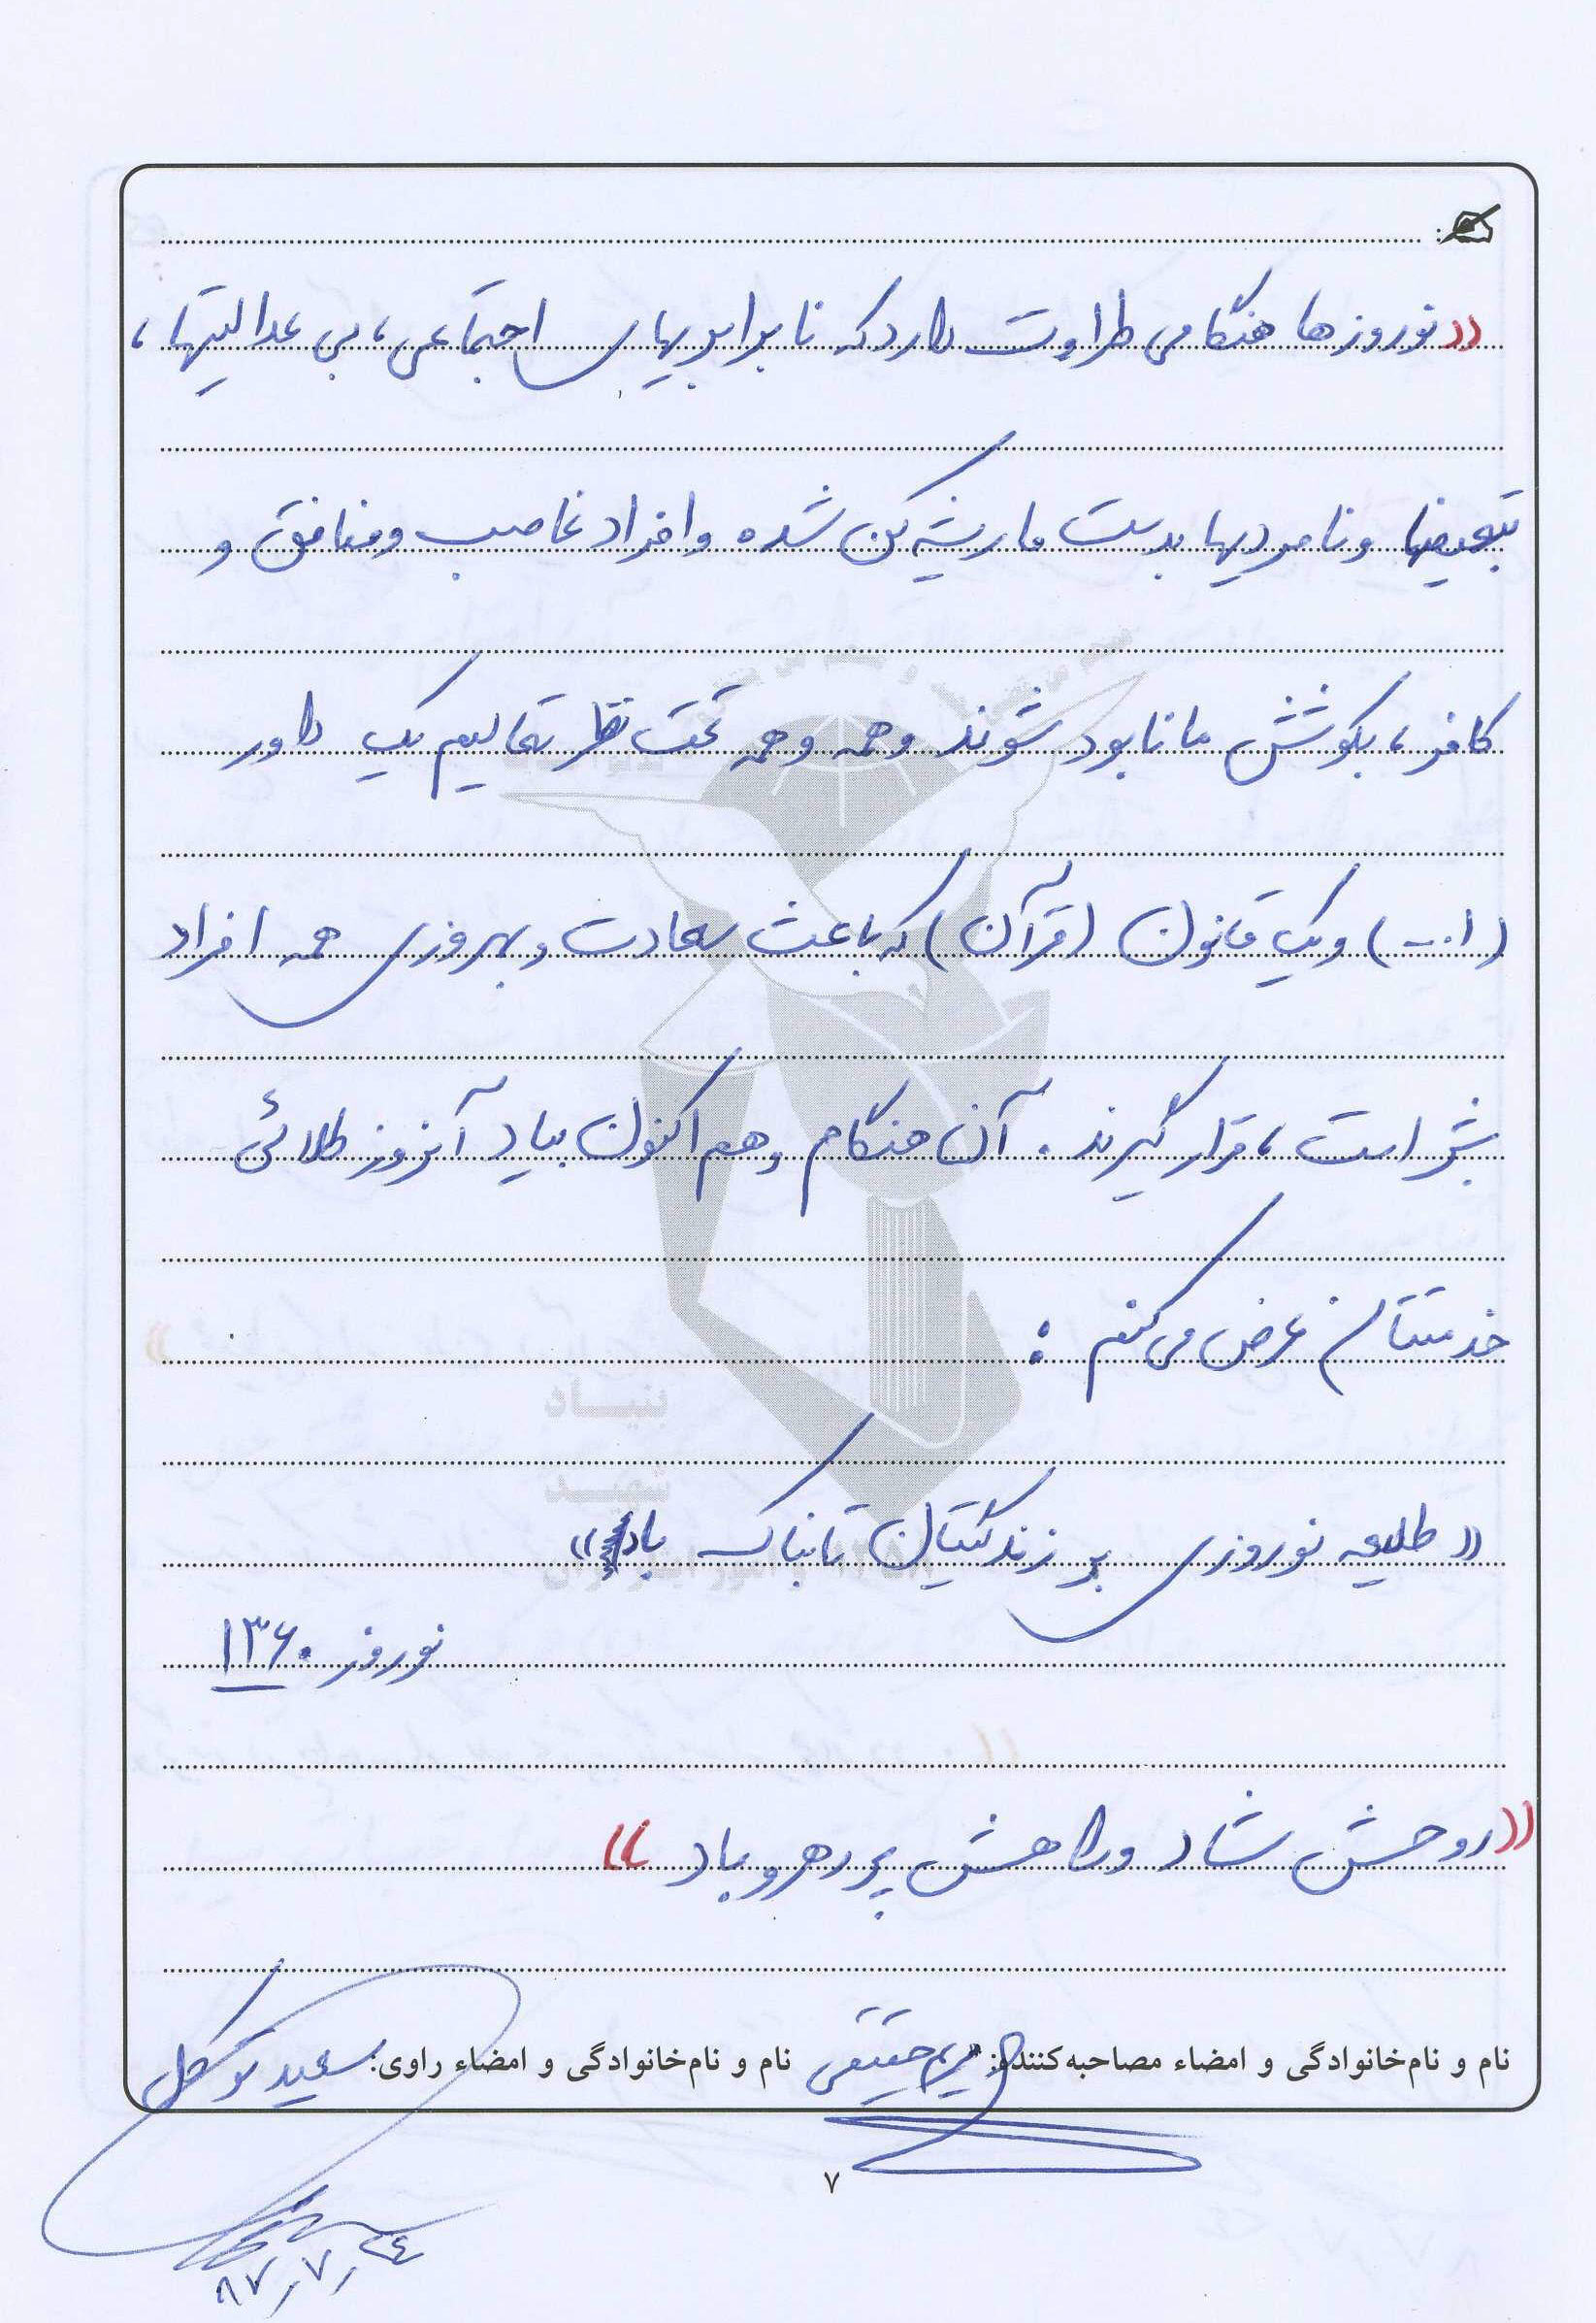 «نوروزها هنگامی طراوت دارد که نابرابریهای اجتماعی، بی عدالتیها،
تبعیضها و نامردیها بدست ما ریشه کن شده و افراد غاصب و منافق و
کافر، بکوشش ما نابود شوند و همه و همه تحت نظر تعالیم یک داور
( ) و یک قانون (قرآن) که باعث سعادت و بهروزی همه افراد
بشر است، قرار گیرند. آن هنگام و هم اکنون بیاد آنروز طلائی
خدمتتان عرض می کنم :
«طلیعه نوروزی بر زندگیتان تابناک باد»
نوروز ۱۳۶۰
«روحش شاد و راهش پر رهرو باد»
نام و نام‌خانوادگی و امضاء مصاحبه‌کننده: حقیقی نام و نام‌خانوادگی و امضاء راوی: سعید توکل
۷
۸۷/۷/۲۴
بنیاد
شهید